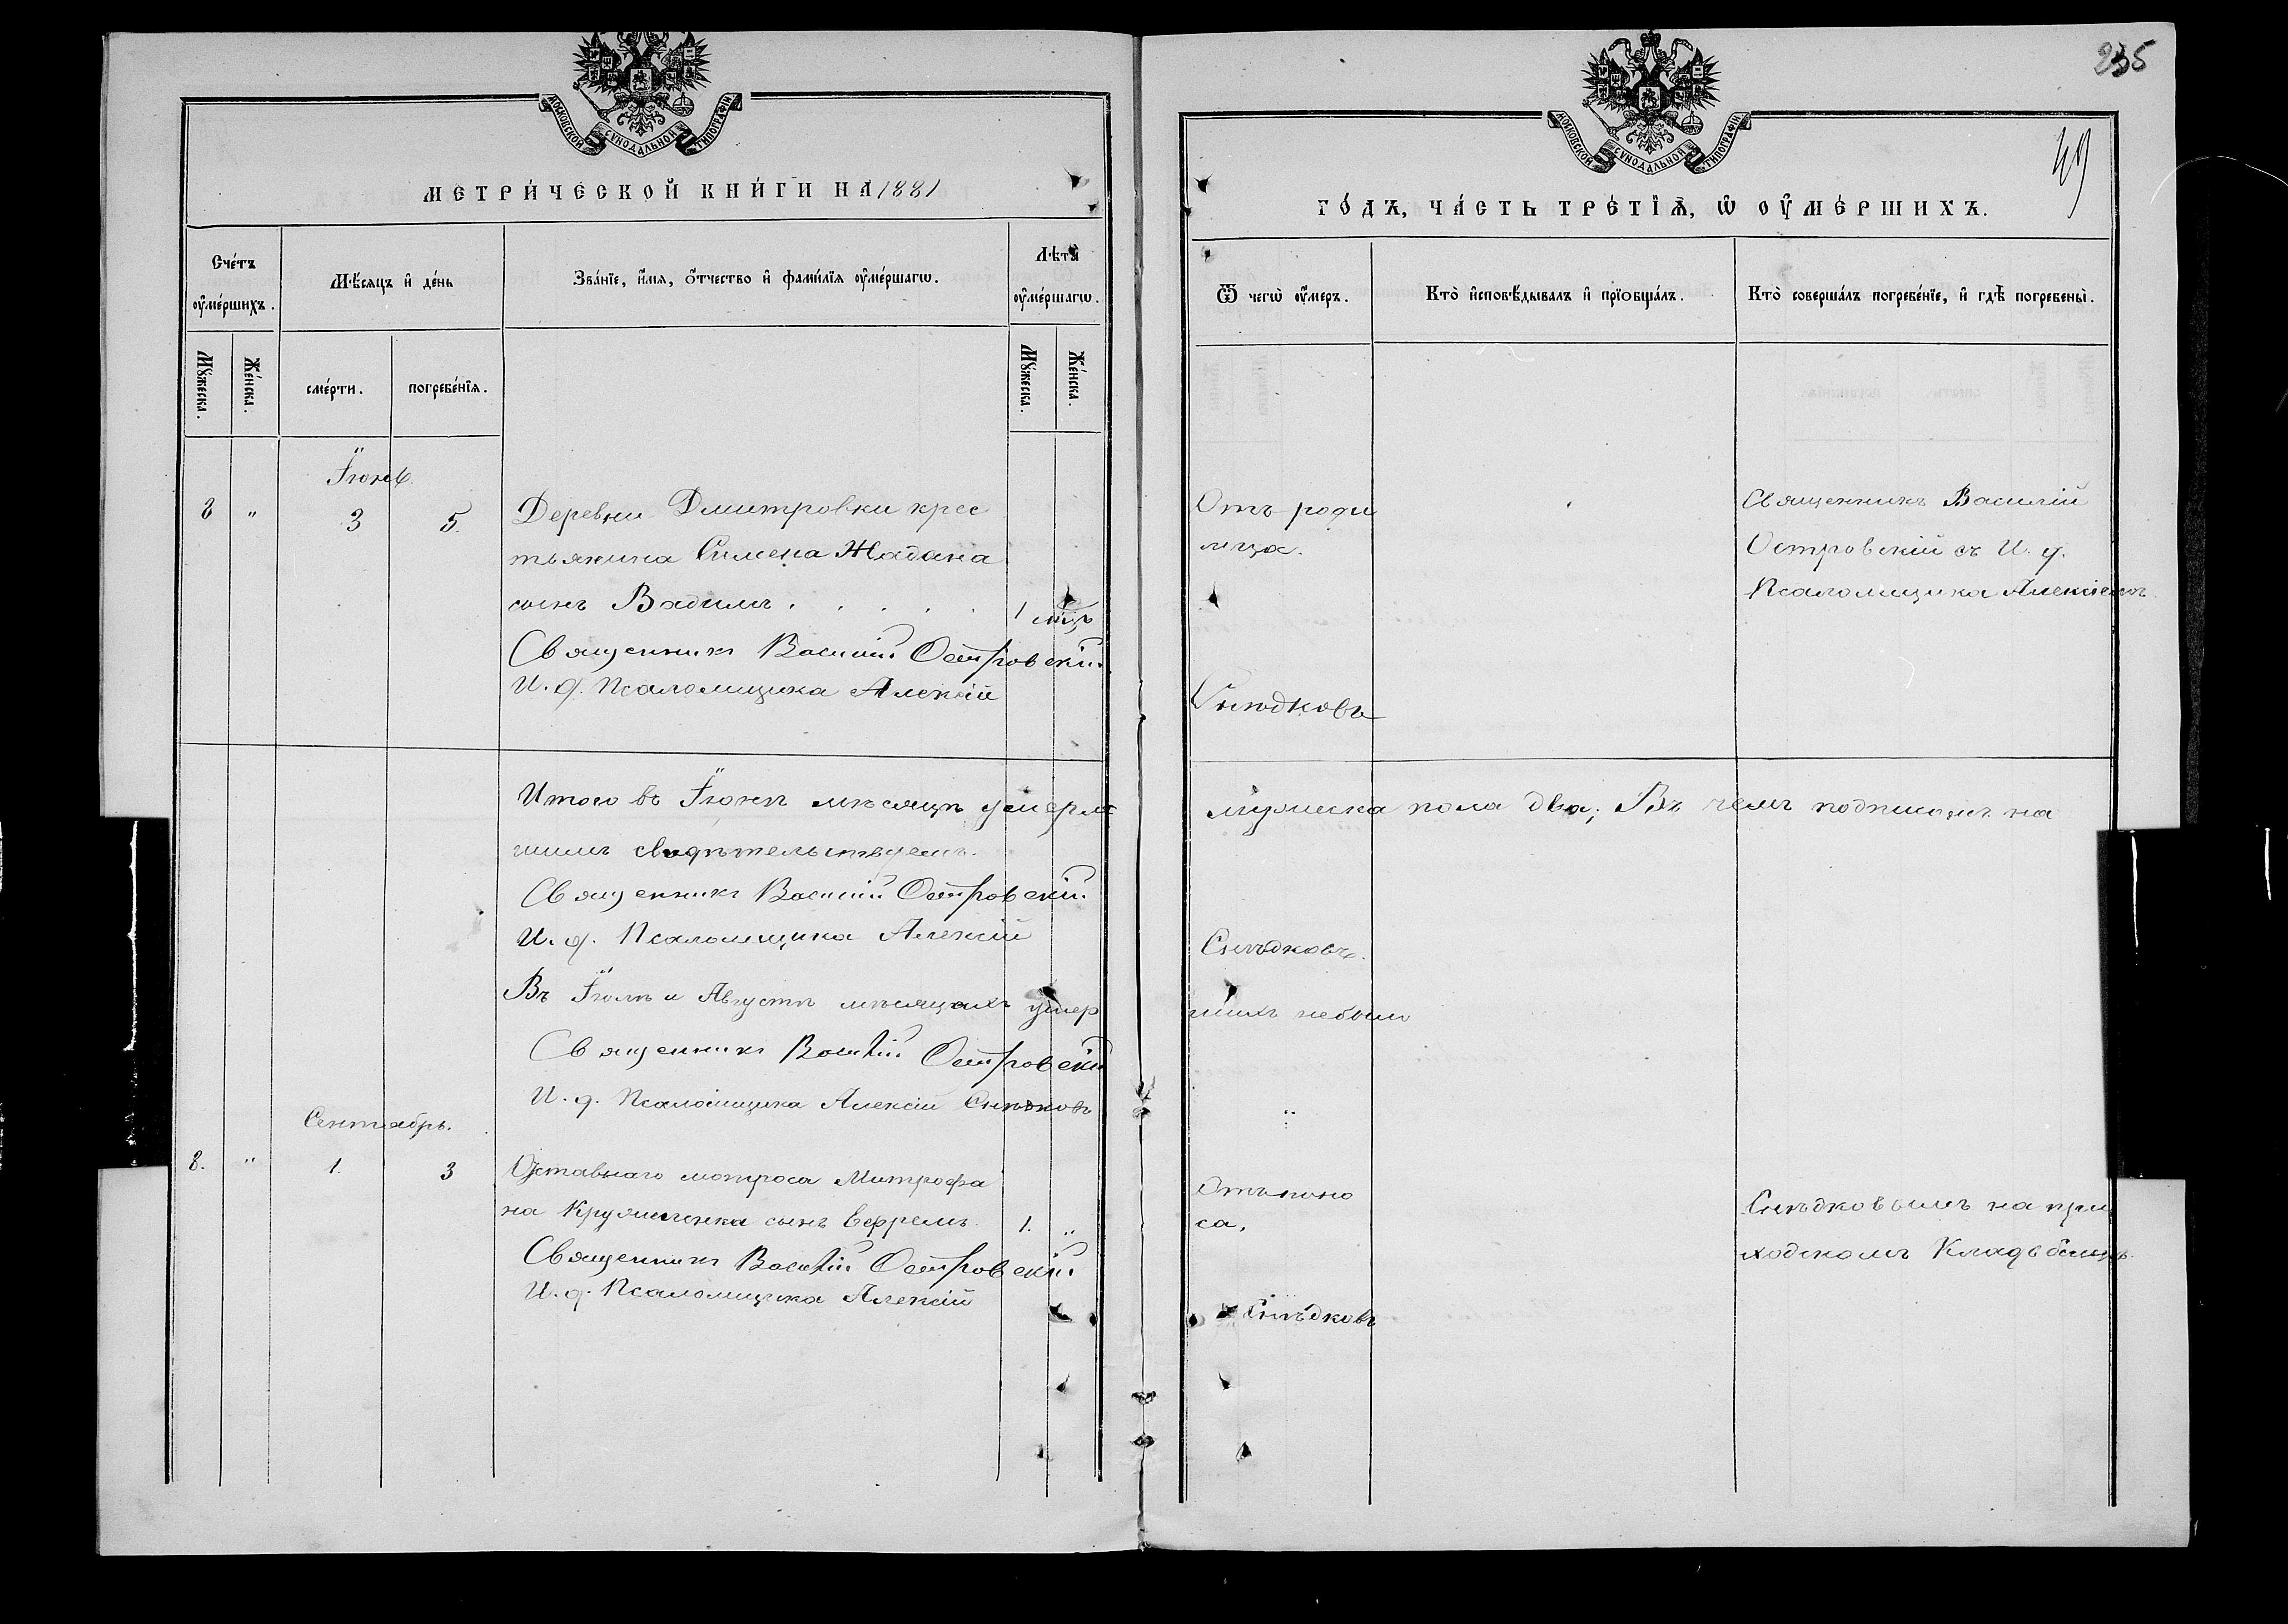 МОСКОВСКОЙ СѴНОДАЛЬНОЙ ТИПОГРАФІИ
МЕТРИ́ЧЕСКОЙ КНИ́ГИ НА 1881
Сче́тъ оу҆ме́ршихъ.
Мѣ́сяцъ и҆ де́нь
Зва́нїе, и҆́мя, ѻ҆́тчество и҆ фами́лїя оу҆ме́ршагѡ.
Лѣта̀ оу҆ме́ршагѡ.
Мꙋ́жеска.
Же́нска.
сме́рти.
погребе́нїя.
Мꙋ́жеска.
Же́нска.
Іюнь
3 5. Деревни Дмитровки крес
тьянина Симена Жадана
сынъ Вадимъ . . . . . 1 мѣц
Священникъ Василій Островскій
И. д. Псаломщика Алексій
Итого въ Іюнѣ мѣсяцѣ умерло
шимъ свидѣтельствуемъ.
Священникъ Василій Островскій
И. д. Псаломщика Алексій
Въ Іюлѣ и Августѣ мѣсяцахъ умер
Священникъ Василій Островскій
И. д. Псаломщика Алексій Снѣдковъ
Сентябрь.
8. " 1. 3 Отставнаго матроса Митрофа
на сынъ Ефремъ 1. "
Священникъ Василій Островскій
И. д. Псаломщика Алексій
235
49
МОСКОВСКОЙ СѴНОДАЛЬНОЙ ТИПОГРАФІИ
ГО́ДЪ, ЧА́СТЬ ТРЕ́ТЇѦ, Ѡ҆ ОУ҆МЕ́РШИХЪ.
Ѿ чегѡ̀ оу҆́меръ.
Кто̀ и҆сповѣ́дывалъ и҆ прїѻбща́лъ.
Кто̀ соверша́лъ погребе́нїе, и҆ гдѣ̀ погребены̀.
Отъ роди
мца.
Священникъ Василій
Островскій съ И. д.
Псаломщика Алексіемъ
Снѣдковъ
мужеска пола два; Въ чемъ подписомъ на
Снѣдковъ.
шихъ небыло
Отъ поно
са.
Снѣдковымъ на при
ходскомъ Кладбищѣ.
Снѣдковъ